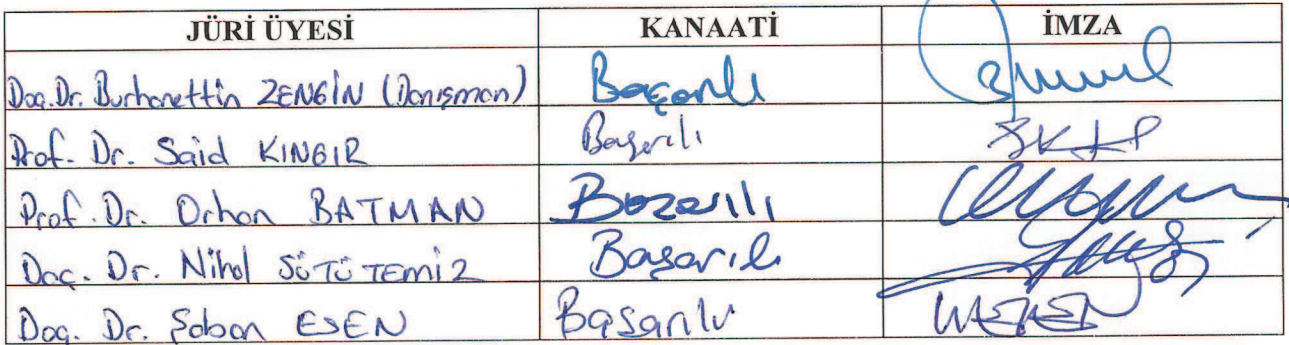 JÜRİ ÜYESİ KANAATİ İMZA
Doç.Dr. Burhanettin ZENGİN (Danışman) Başarılı
Prof. Dr. Said KINGIR Başarılı
Prof. Dr. Orhan BATMAN Başarılı
Doç. Dr. Nihal SÜTÜTEMİZ Başarılı
Doç. Dr. Şaban ESEN Başarılı